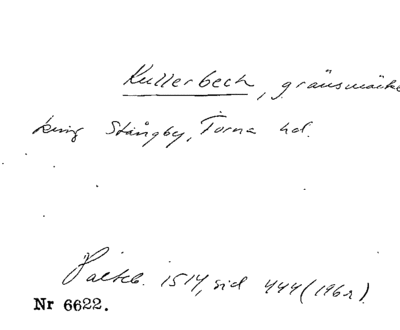 Kullerbech, gränsmärke
kring Stångby, Torna hd.
Palteb. 1514, sid 444 (196r).
Nr 6622.